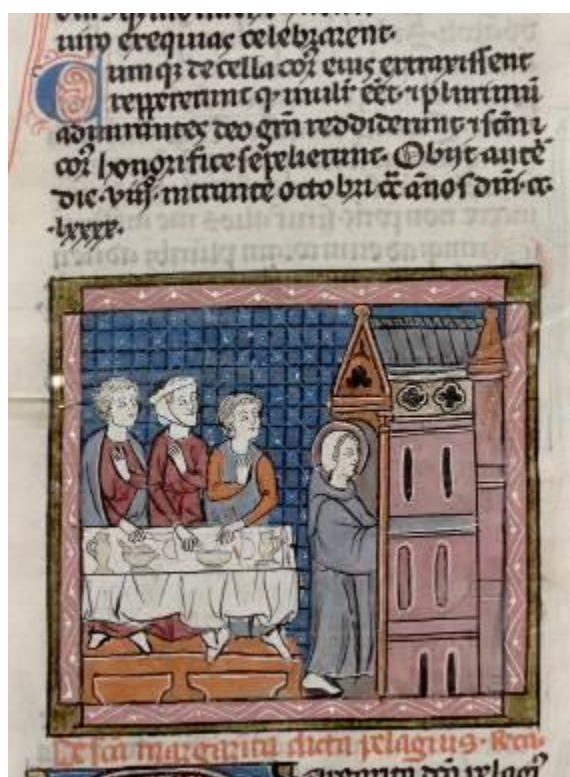 uiro exequias celebrarent.
Cumq̄ de cella corꝰ eiꝰ extraxissent
reppererunt q̇ mulr̄ eēt. ⁊ plurimū
admirantes deo gr̄as reddiderunt ⁊ scm̄
corꝰ honorifice sepelierunt. Obijt autē
die. viij. intrante octobri cc̄ annos dnī. cc.
.lxxxx.
De scā margarita dicta pelagius.